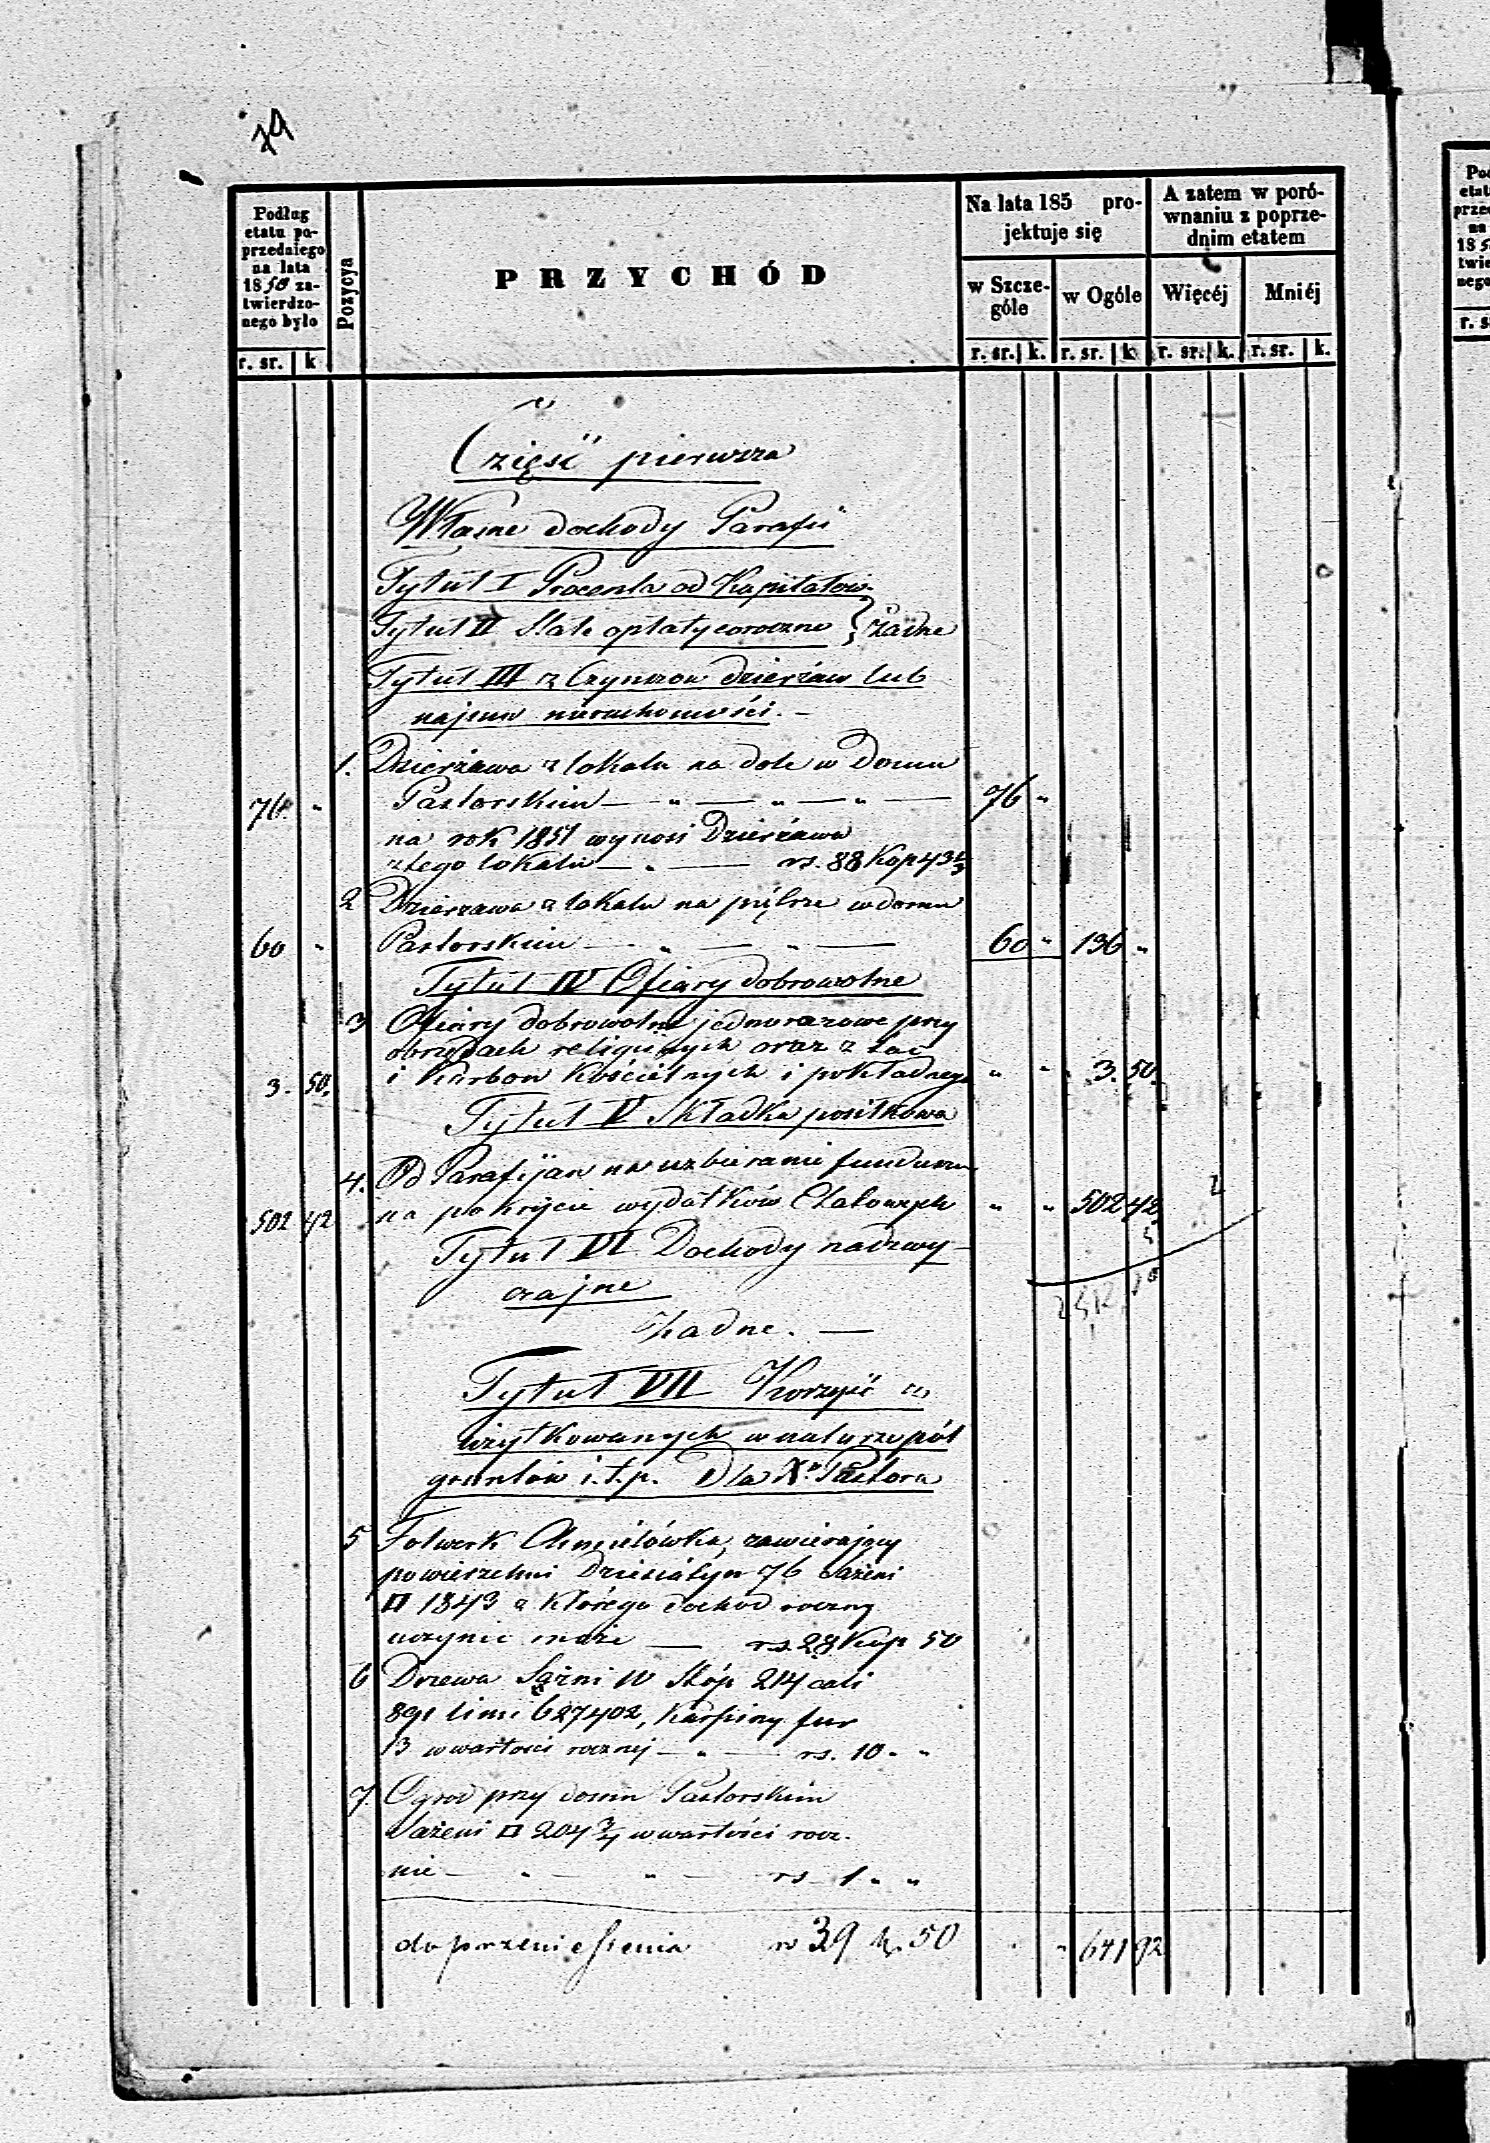 79
Podług etatu poprzedniego na lata 1850 zatwierdzonego było
r. sr. | k
Pozycya
PRZYCHÓD
Na lata 185 projektuje się
w Szczególe
w Ogóle
r. sr. | k. r. sr. | k
A zatem w porównaniu z poprzednim etatem
Więcéj
Mniéj
r. sr. | k. r. sr. | k.
Część pierwsza
Własne dochody Parafii
Tytuł I Procenta od Kapitałow
Tytuł II Stałe opłaty coroczne } Żadne
Tytuł III z Czynszow dzierżaw lub
najmu nieruchomości. –
1. Dzierżawa z lokalu na dole w Domu
76. " Pastorskim — " — " — " — 76 "
na rok 1851 wynosi Dzierżawa
z tego lokalu — " — rs. 88 Kop 43
2 Dzierżawa z lokalu na piętrze w domu
60 " Pastorskim — " — " — 60 " 136 "
Tytuł IV Ofiary dobrowolne
3 Ofiary dobrowolne jednorazowe przy
obrzędach religijnych oraz z tac
3. 50. i Karbon Kościelnych i pokładnego " " 3. 50.
Tytuł V Składka posiłkowa
4. Od Parafijan na uzbieranie funduszu
502 42 na pokrycie wydatków Etatowych " " 502 42
Tytuł VI Dochody nadzwy-
czajne
Żadne. —
Tytuł VII Korzyść z
użytkowanych w naturze pól
gruntów i.t.p. Dla X. Pastora
5 Folwark Chmielówka, zawierający
powierzchni Dziesiatyn 76 Sażeni
□ 1843 z którego dochód roczny
uczynić może — rs. 28 Kop 50
6 Drzewa Sążni 10 Stóp 214 cali
891 linii 627402, Karpiny fur
13 w wartości rocznej — " — rs. 10 " "
7. Ogrod przy domu Pastorskim
Sażeni □ 204 3/4 w wartości rocz.
nie — " — " — rs 1 " "
do przeniesienia rs 39 k. 50 " 641 92